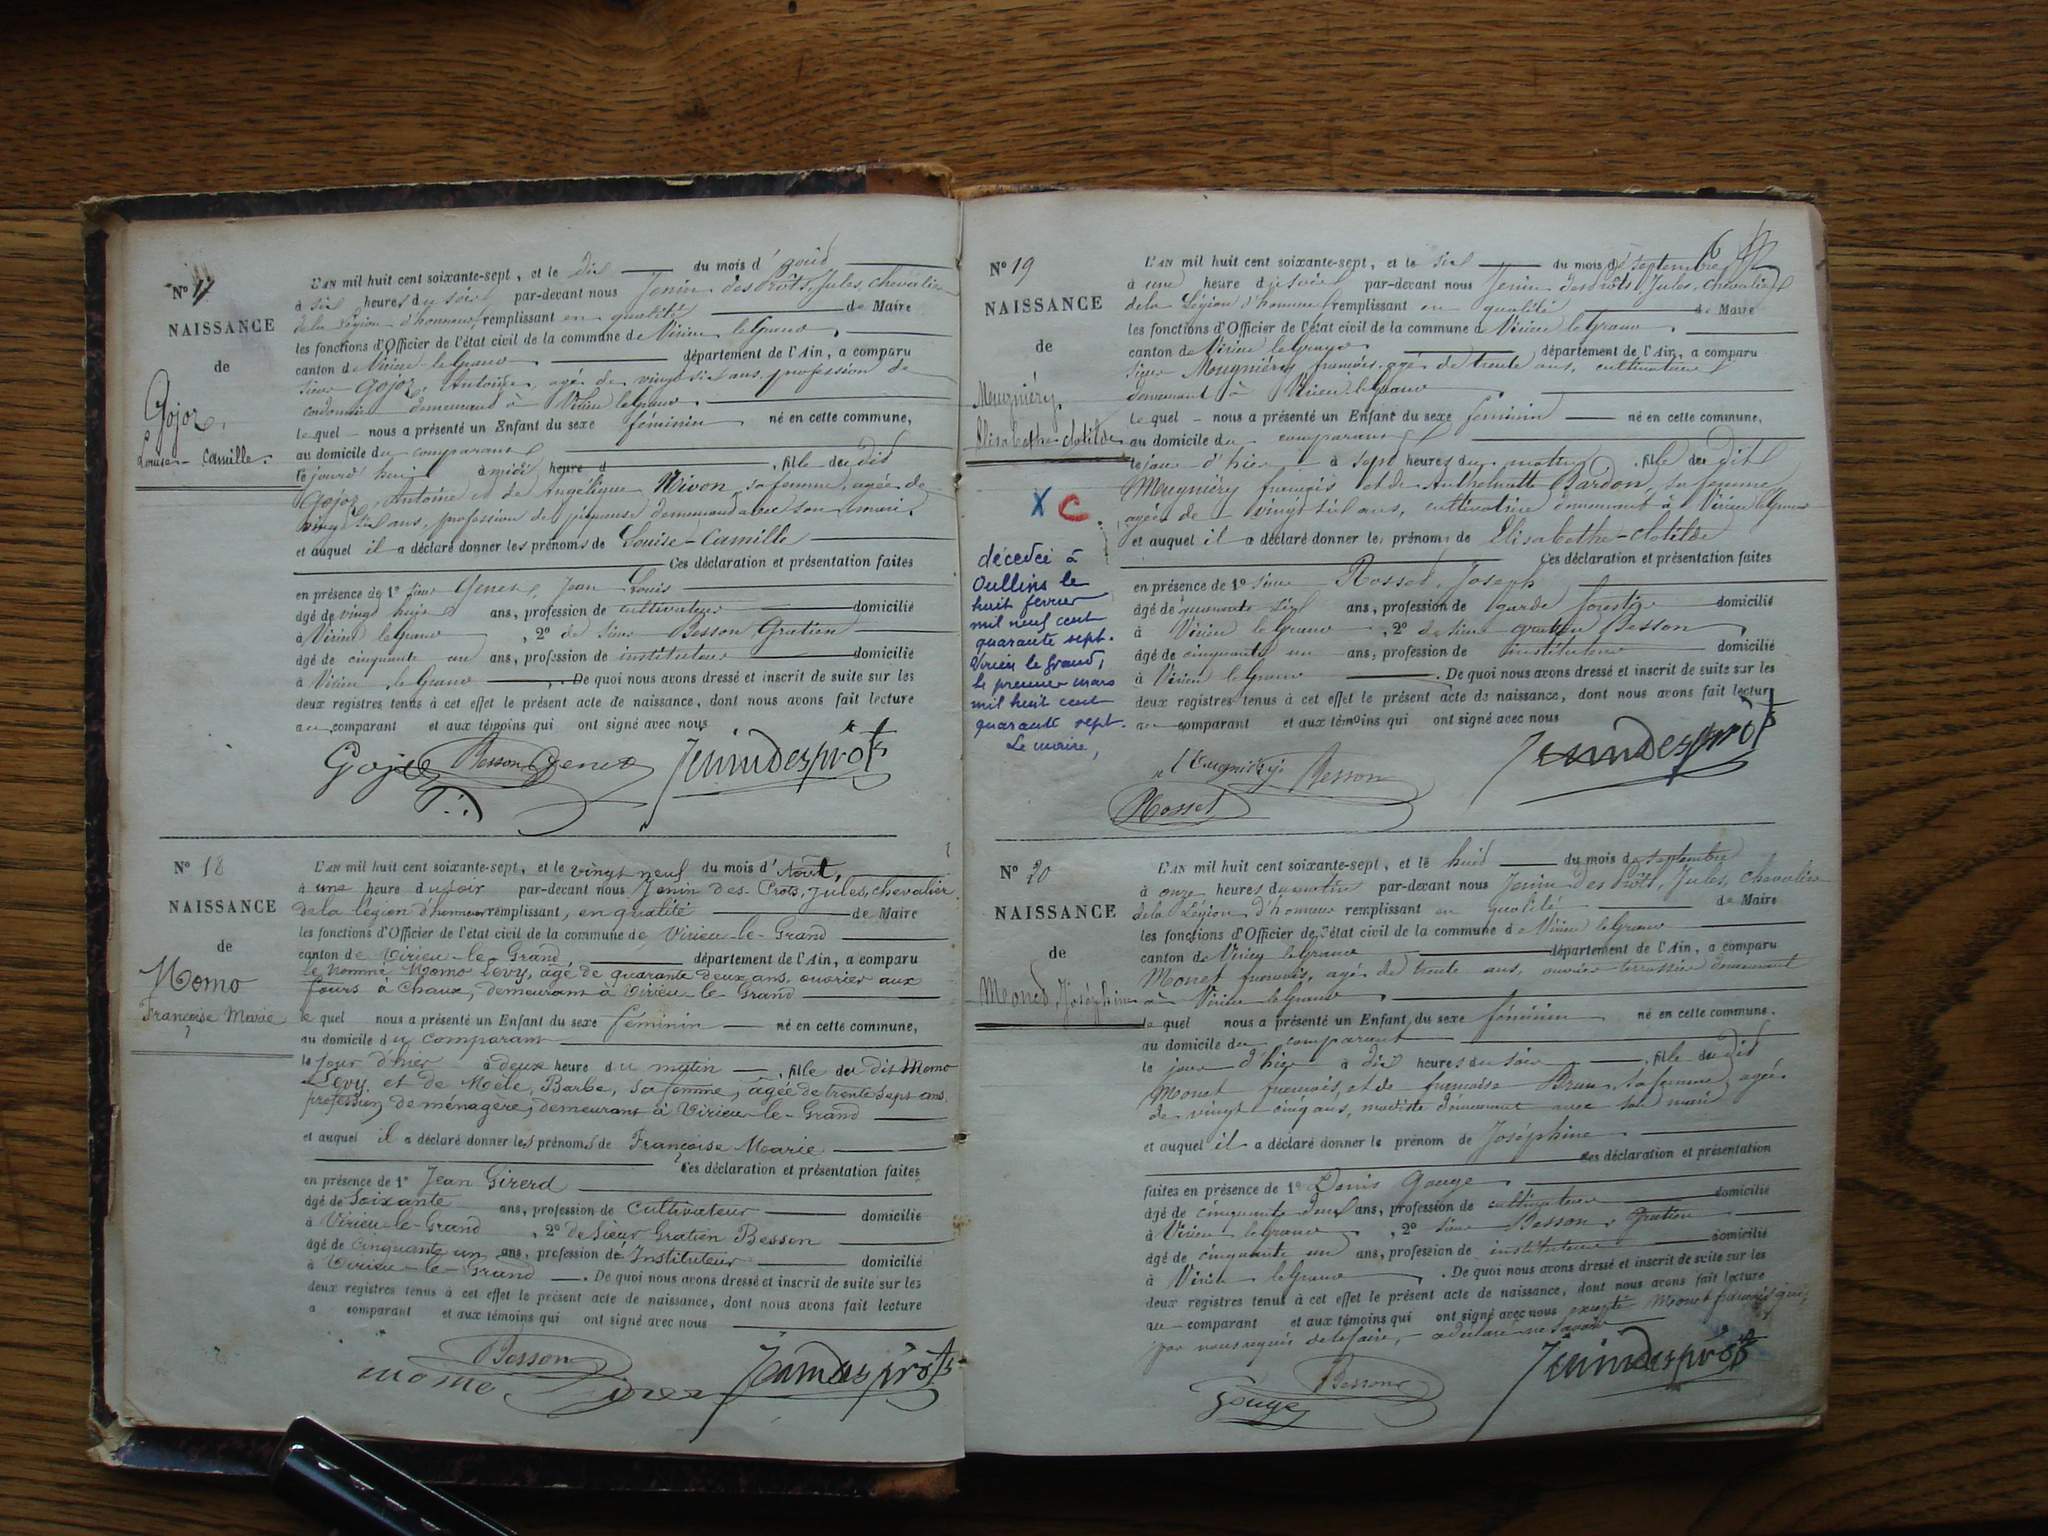 N° 17
NAISSANCE
de
Gojoz,
Louise-Camille.
L'AN mil huit cent soixante-sept, et le dix du mois d'
à six heures du soir par-devant nous Jenin des Prôts, Jules, chevalier
de la Légion d'honneur, remplissant en qualité de Maire
les fonctions d'Officier de l'état civil de la commune de Virieu le Grand,
canton de Virieu-le-Grand département de l'Ain, a comparu
sieur Gojoz, Antoine, agé de vingt six ans, profession de
cordonnier demeurant à Virieu le Grand
lequel nous a présenté un Enfant du sexe féminin né en cette commune,
au domicile du comparant
le jourd'hui à midi heure d , fille du dit
Gojoz, Antoine et de Angélique Nivon, sa femme, agée de
vingt six ans, profession de piqueuse demeurant avec son mari,
et auquel il a déclaré donner les prénoms de Louise-Camille
Ces déclaration et présentation faites
en présence de 1° sieur Genet, Jean Louis
âgé de vingt huit ans, profession de cultivateur domicilié
à Virieu le Grand , 2° de sieur Besson Gratien
âgé de cinquante un ans, profession de instituteur domicilié
à Virieu le Grand . De quoi nous avons dressé et inscrit de suite sur les
deux registres tenus à cet effet le présent acte de naissance, dont nous avons fait lecture
au comparant et aux témoins qui ont signé avec nous
Gojoz Besson Genet Jenindesprôts
N° 18
NAISSANCE
de
Momo
Françoise Marie
L'AN mil huit cent soixante-sept, et le vingt neuf du mois d'Août,
à une heure du soir par-devant nous Jenin des Prots, Jules, chevalier
de la légion d'honneur remplissant, en qualité de Maire
les fonctions d'Officier de l'état civil de la commune de Virieu-le-Grand
canton de Virieu-le-Grand département de l'Ain, a comparu
le nommé Momo Lévy, âgé de quarante deux ans, ouvrier aux
fours à chaux, demeurant à Virieu-le-Grand
lequel nous a présenté un Enfant du sexe féminin né en cette commune,
au domicile du comparant
le jour d'hier à deux heure du matin , fille du dit Momo
Lévy et de Barbe, sa femme, âgée de trente sept ans,
profession de ménagère, demeurant à Virieu-le-Grand
et auquel il a déclaré donner les prénoms de Françoise Marie
Ces déclaration et présentation faites
en présence de 1° Jean Girerd
âgé de Soixante ans, profession de cultivateur domicilié
à Virieu-le-Grand , 2° de Sieur Gratien Besson
âgé de Cinquante un ans, profession d'Instituteur domicilié
à Virieu-le-Grand . De quoi nous avons dressé et inscrit de suite sur les
deux registres tenus à cet effet le présent acte de naissance, dont nous avons fait lecture
a comparant et aux témoins qui ont signé avec nous
Besson
momo Jenindesprôts
6
N° 19
NAISSANCE
de
Meugniéry,
Elisabethe-Clotilde
X C
décédée à
Oullins le
huit février
mil neuf cent
quarante sept.
Virieu le Grand,
le premier mars
mil huit cent
quarante sept.
Le maire,
L'AN mil huit cent soixante-sept, et le six du mois de septembre
à une heure du soir par-devant nous Jenin des Prôts Jules, chevalier
de la Légion d'honneur remplissant en qualité de Maire
les fonctions d'Officier de l'état civil de la commune de Virieu le Grand,
canton de Virieu le Grand département de l'Ain, a comparu
sieur Meugniéry françois, agé de trente ans, cultivateur
demeurant à Virieu le Grand
lequel nous a présenté un Enfant du sexe féminin né en cette commune,
au domicile du comparant
le jour d'hier à sept heures du matin , fille du dit
Meugniéry françois et de Anthelmette Bardon, sa femme
agée de vingt six ans, cultivatrice demeurant à Virieu le Grand
et auquel il a déclaré donner les prénoms de Elisabethe-Clotilde
Ces déclaration et présentation faites
en présence de 1° sieur Rosset, Joseph
âgé de ans, profession de garde forestier domicilié
à Virieu le Grand , 2° de sieur gratien Besson
âgé de cinquante un ans, profession de instituteur domicilié
à Virieu le Grand . De quoi nous avons dressé et inscrit de suite sur les
deux registres tenus à cet effet le présent acte de naissance, dont nous avons fait lecture
au comparant et aux témoins qui ont signé avec nous
Meugniéry Besson Jenindesprôts
Rosset
N° 20
NAISSANCE
de
Monet, Joséphine
L'AN mil huit cent soixante-sept, et le huit du mois de septembre
à onze heures du matin par-devant nous Jenin des Prôts, Jules, chevalier
de la Légion d'honneur remplissant en qualité de Maire
les fonctions d'Officier de l'état civil de la commune de Virieu le Grand
canton de Virieu le Grand département de l'Ain, a comparu
Monet françois, agé de trente ans, ouvrier terrassier demeurant
à Virieu le Grand
lequel nous a présenté un Enfant du sexe féminin né en cette commune.
au domicile du comparant
le jour d'hier à dix heures du soir , fille du dit
Monet françois, et de françoise Brun, sa femme, agée
de vingt cinq ans, modiste demeurant avec son mari
et auquel il a déclaré donner le prénom de Joséphine
Ces déclaration et présentation
faites en présence de 1° Denis Gouge
âgé de cinquante deux ans, profession de cultivateur domicilié
à Virieu le Grand , 2° sieur Besson, Gratien
âgé de cinquante un ans, profession de instituteur domicilié
à Virieu le Grand . De quoi nous avons dressé et inscrit de suite sur les
deux registres tenus à cet effet le présent acte de naissance, dont nous avons fait lecture
au comparant et aux témoins qui ont signé avec nous excepté Monet françois qui,
par nous requis de le faire, a déclaré ne savoir
Besson Jenindesprôts
Gouge